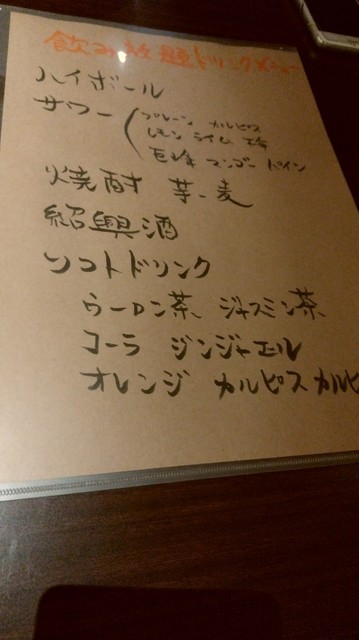 飲み放題ドリンクメニュー
ハイボール
サワー(プレーン カルピス
レモン ライム
巨峰 マンゴー パイン
焼酎 芋、麦
紹興酒
ソフトドリンク
ウーロン茶、ジャスミン茶、
コーラ ジンジャーエル
オレンジ カルピス カルピ